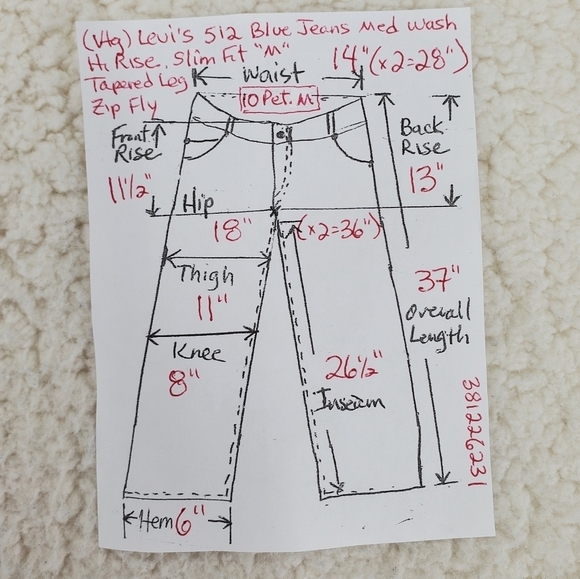 (Vtg) Levi's 512 Blue Jeans Med Wash
Hi Rise. Slim Fit "M" 14" (x2=28")
Tapered Leg Waist
Zip Fly 10 Pet. M
Front Rise
11 1/2"
Back Rise
13"
Hip
18" (x2=36")
Thigh
11"
37"
Overall
Length
Knee
8"
26 1/2"
Inseam
381226231
Hem 6"